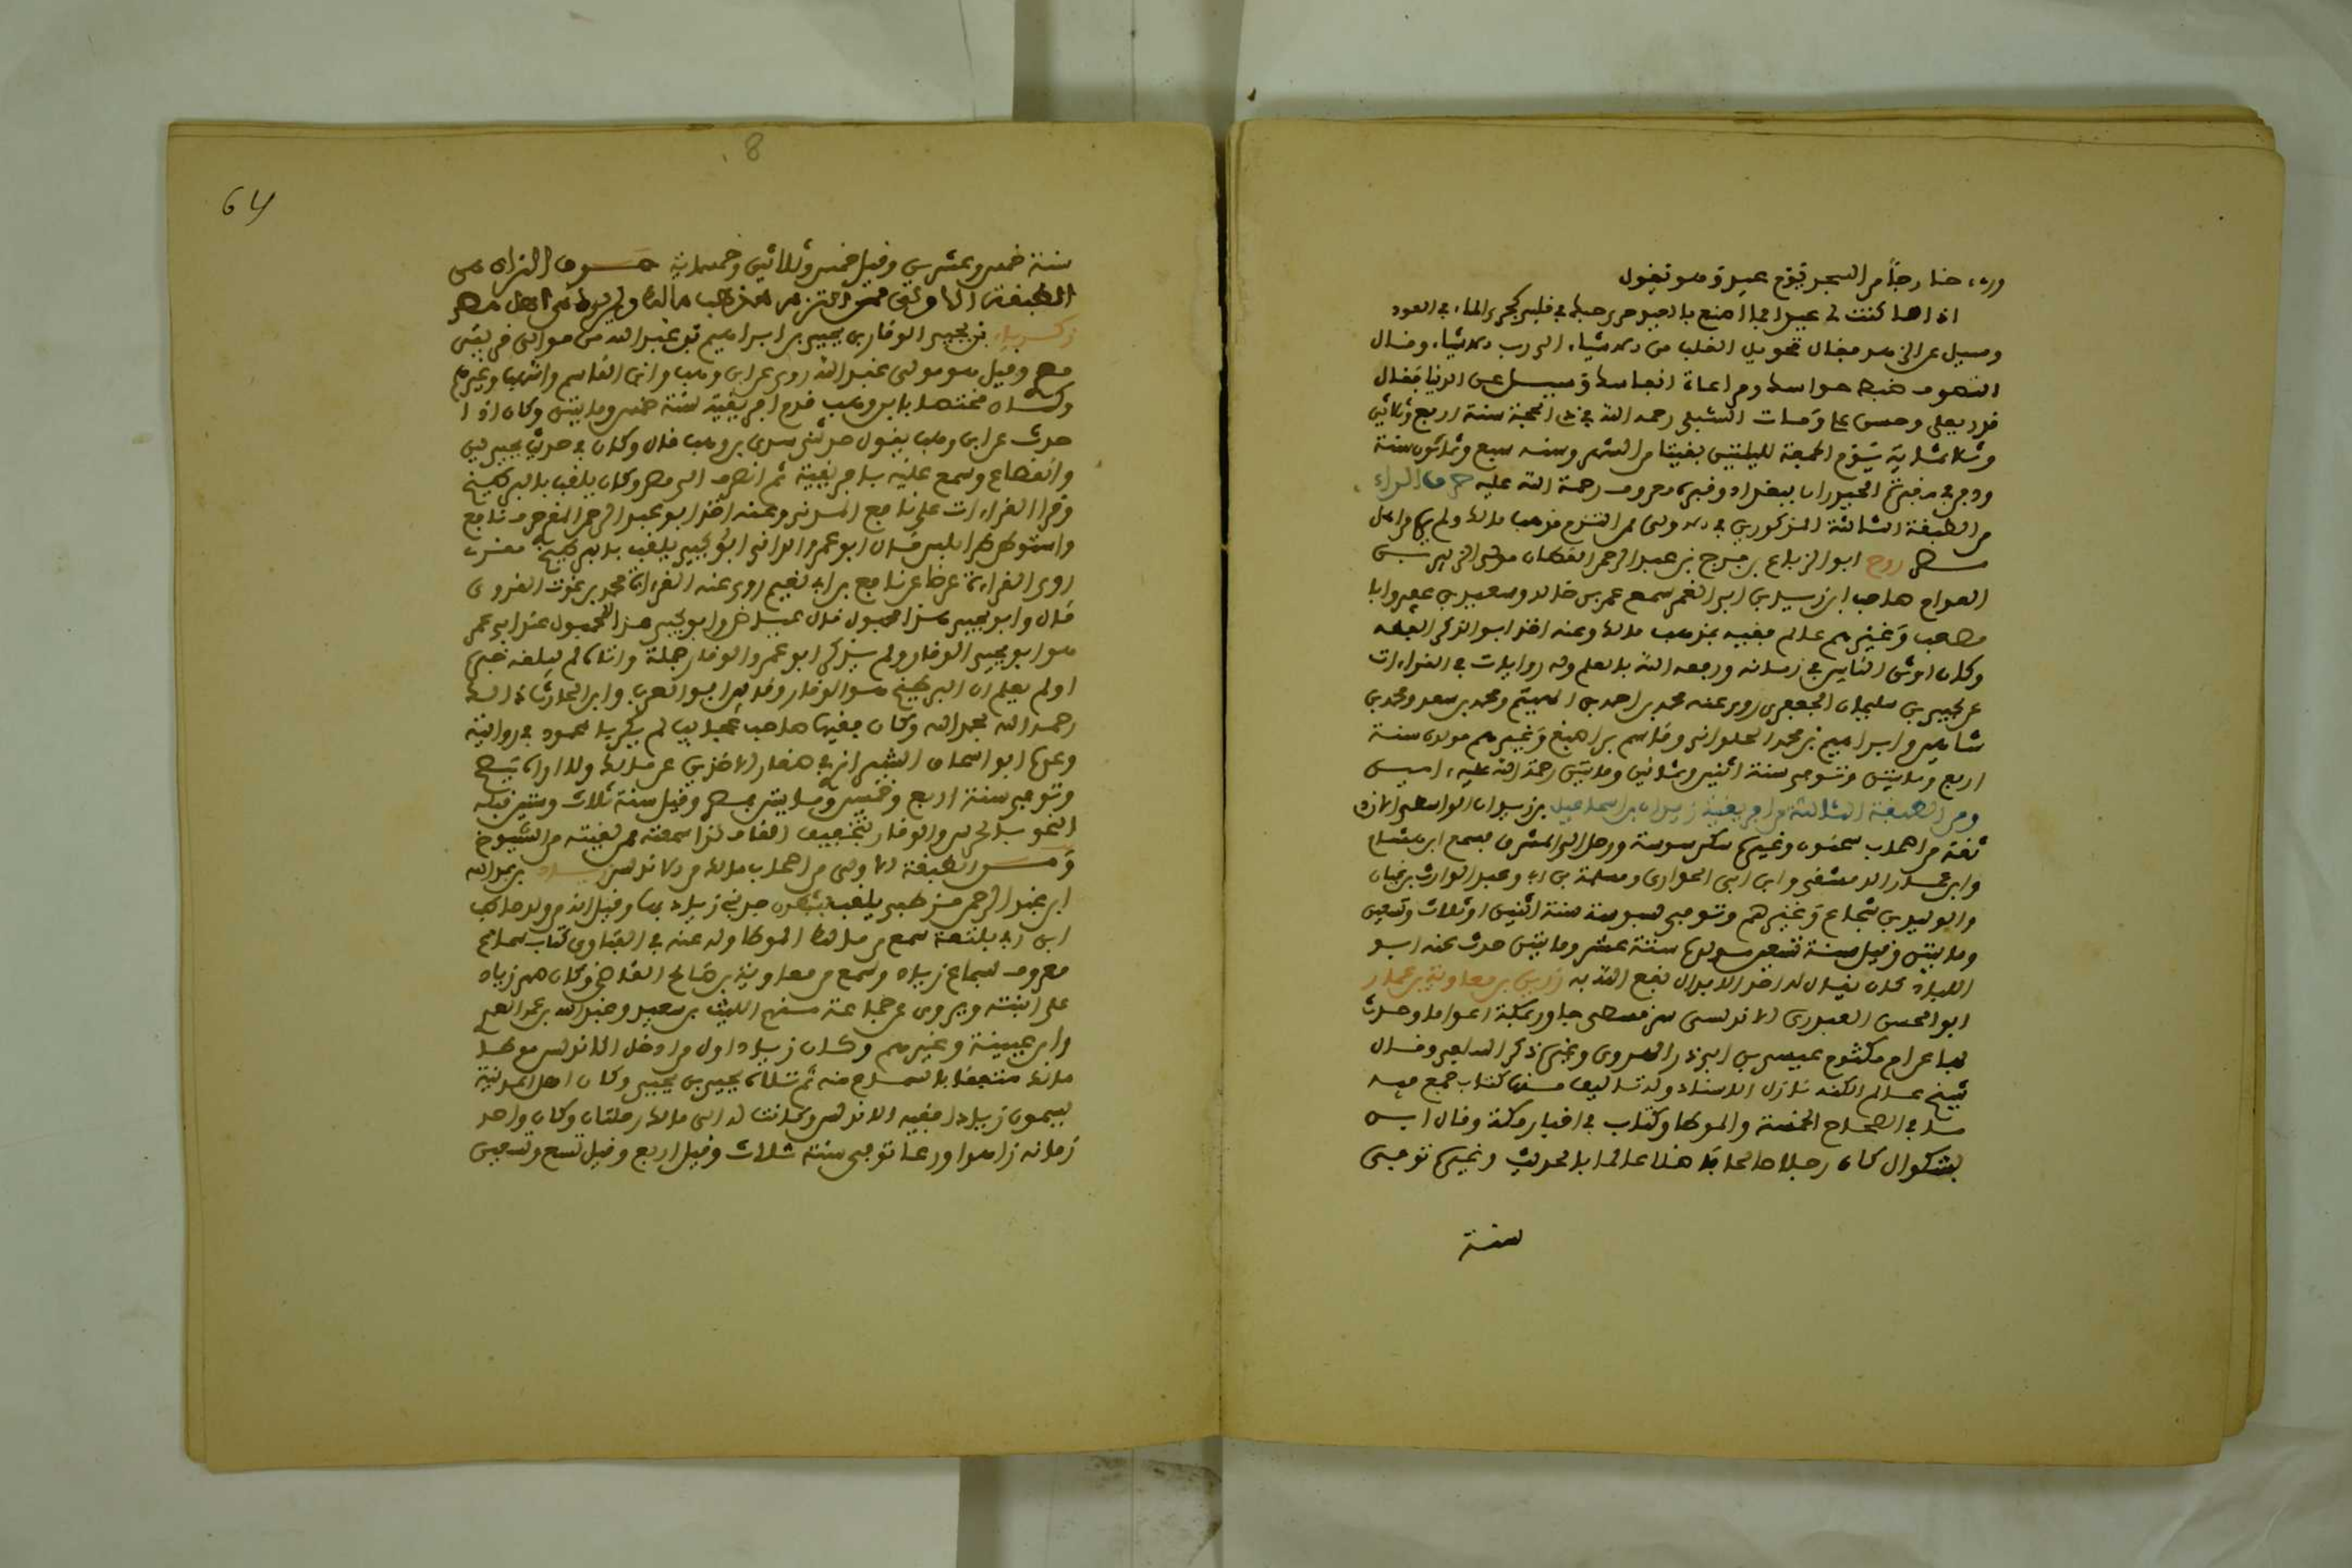 ورءه خارجا من المسجد يوم عيد وهو يقول
اذا ما كنت لى عيدا فما اصنع بالعيد جرى حبك فى قلبى كجرى الماء فى العود
وسيل عن الزهد فقال تحويل القلب من الاشياء الى رب الاشياء وقال
التصوف ضبط حواسك ومراعاة انفاسك وسيل عن الدنيا فقال
قدر يغلى وحش يملا ومات الشبلى رحمه الله فى ذى الحجة سنة اربع وثلاثين
وثلاثماية يوم الجمعة لليلتين بقيتا من الشهر وسنه سبع وثمانون سنة
ودفن فى مقبرة الخيزران ببغداد وقبره معروف رحمة الله عليه حرف الراء
من الطبقة الثالثة المذكورين فى الاولى ممن التزم مذهب مالك ولم يره من اهل
مصر روح ابو الزنباع بن فرج بن عبد الرحمن القطان مولى الزبير بن
العوام صاحب ابى زيد بن ابى الغمر سمع عمر بن خالد وسعيد بن عفير وابا
مصعب وغيرهم عالم فقيه بمذهب مالك وعنه اخذ ابو الذكر الفقه
وكان اوثق الناس فى زمانه ورفعه الله بالعلم وله روايات فى القراءات
عن يحيى بن سليمان الجعفى روى عنه محمد بن احمد بن الهيثم ومحمد بن سعد ومحمد بن
شاهين وابراهيم بن محمد الحلوانى وقاسم بن اصبغ وغيرهم مولده سنة
اربع ومايتين وتوفى سنة اثنين وثمانين ومايتين رحمة الله عليه امين
ومن الطبقة الثالثة من افريقية زيدان بن اسماعيل بن زيدان الواسطى الازدى
ثقة من اصحاب سحنون وغيره سكن سوسة ورحل الى المشرق فسمع ابن هشام
وابن عمار الدمشقى وابن ابى الحوارى ومسلمة بن وعبد الوارث بن غياث
والوليد بن شجاع وغيرهم وتوفى بسوسة سنة اثنين او ثلاث وتسعين
ومايتين وقيل سنة تسعين مولده سنة عشر ومايتين حدث عنه ابو
اللباد كان يقال له احد الابدال نفع الله به رزين بن معاوية بن عمار
ابو الحسن العبدرى الاندلسى سرقسطى جاور بمكة اعواما وحدث
بها عن ام مكتوم عيسى بن ابى ذر الهروى وغيره ذكره السلفى وقال
شيخ عالم لكنه نازل الاسناد وله تاليف منها كتاب جمع فيه
ما فى الصحاح الخمسة والموطا وكتاب فى اخبار مكة وقال ابن
بشكوال كان رجلا صالحا فاضلا عالما بالحديث وغيره توفى
سنة
8
64
سنة خمس وعشرين وقيل خمس وثلاثين وخمسماية حرف الزاى من
الطبقة الاولى ممن التزم مذهب مالك ولم يره من اهل مصر
زكرياء بن يحيى الوقار بن يحيى بن ابراهيم بن عبد الله من موالى قريش
مصر وقيل هو مولى عبد الله روى عن ابن وهب وابن القاسم واشهب وغيرهم
وكان مختصا بابن وهب قدم افريقية سنة خمس ومايتين وكان اذا
حدث عن ابن وهب يقول حدثنى سيدى بن وهب قال وكان فى حديث يحيى لين
وانقطاع وسمع عليه بافريقية ثم انصرف الى مصر وكان يلقب بالبرطيخ
وقرا القراءات على نافع المدنى وعنه اخذ ابو عبد الرحمن المقرى حرف نافع
واستوطن طرابلس قال ابو عمرو الدانى ابو يحيى يلقب بالبرطيخ مغرب
روى القراءة عرضا عن نافع بن ابى نعيم روى عنه القراءة محمد بن برغوث القروى
قال وابو يحيى هذا مجهول قال عياض وابو يحيى هذا المجهول عند ابى عمر
هو ابو يحيى الوقار ولم يذكره ابو عمرو الوقار جملة واراه لم يبلغه خبره
او لم يعلم ان البرطيخ هو الوقار وقد بين ابو العرب وابن الحارث ذلك
رحمه الله بحمد الله وكان فقيها صاحب عجايب لم يكن بالمحمود فى روايته
وعده ابو اسحاق الشيرازى فى صغار الاخذين عن مالك ولا اراه يصح
وتوفى سنة اربع وخمسين ومايتين بمصر وقيل سنة ثلاث وستين قبله
والوقار بتخفيف القاف كذا سمعته ممن لقيته من الشيوخ
ومن الطبقة الاولى من اصحاب مالك من الاندلس زياد بن عبد الله
ابن عبد الرحمن قرطبى يلقب بشبطون جد بنى زياد بها وقيل انه من ولد حاطب
ابن ابى بلتعة سمع من مالك الموطا وله عنه فى الفتاوى كتاب سماع
معروف بسماع زياد وسمع من معاوية بن صالح القاضى وكان صهر زياد
على ابنته ويروى عن جماعة منهم الليث بن سعيد وعبد الله بن عمر العمرى
وابن عيينة وغيرهم وكان زياد اول من ادخل الاندلس موطا
مالك متفقها بالسماع منه ثم تلاه يحيى بن يحيى وكان اهل المدينة
يسمون زيادا فقيه الاندلس وكانت له الى مالك رحلتان وكان واحد
زمانه زهدا وورعا توفى سنة ثلاث وقيل اربع وقيل تسع وتسعين